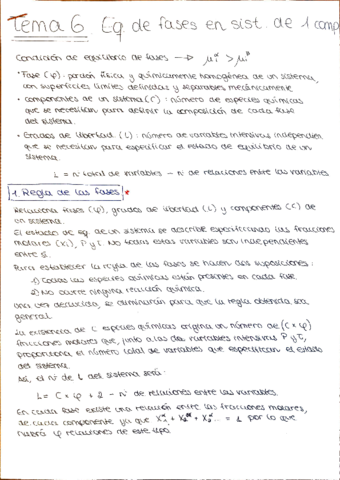 Tema 6 Eq de fases en sist. de 1 comp
Condición de equilibrio de fases → μᵢᵅ > μᵝ
• Fase (φ): porción física y químicamente homogénea de un sistema,
con superficies límites definidas y separables mecánicamente
• componentes de un sistema (C): número de especies químicas
que se necesitan para definir la composición de cada fase
del sistema.
• Grados de libertad (L): número de variables intensivas independien
que se necesitan para especificar el estado de equilibrio de un
sistema.
L = nº total de variables - nº de relaciones entre las variables
1. Regla de las fases
Relaciona fases (φ), grados de libertad (L) y componentes (C) de
un sistema.
El estado de Eq. de un sistema se describe especificando las fracciones
molares (xᵢ), P y T. No todas estas variables son independientes
entre sí.
Para establecer la regla de las fases se hacen dos suposiciones:
1) Todas las especies químicas están presentes en cada fase.
2) No ocurre ninguna reacción química.
Una vez deducida, se eliminarán para que la regla obtenida sea
general.
La existencia de C especies químicas origina un número de (C × φ)
fracciones molares que, junto a las dos variables intensivas P y T,
proporciona el número total de variables que especifican el estado
del sistema.
Así, el nº de L del sistema será:
L = C × φ + 2 - nº de relaciones entre las variables.
En cada fase existe una relación entre las fracciones molares,
de cada componente ya que X₁ᵅ + X₂ᵅ + X₃ᵅ... = 1 por lo que
habrá φ relaciones de este tipo.